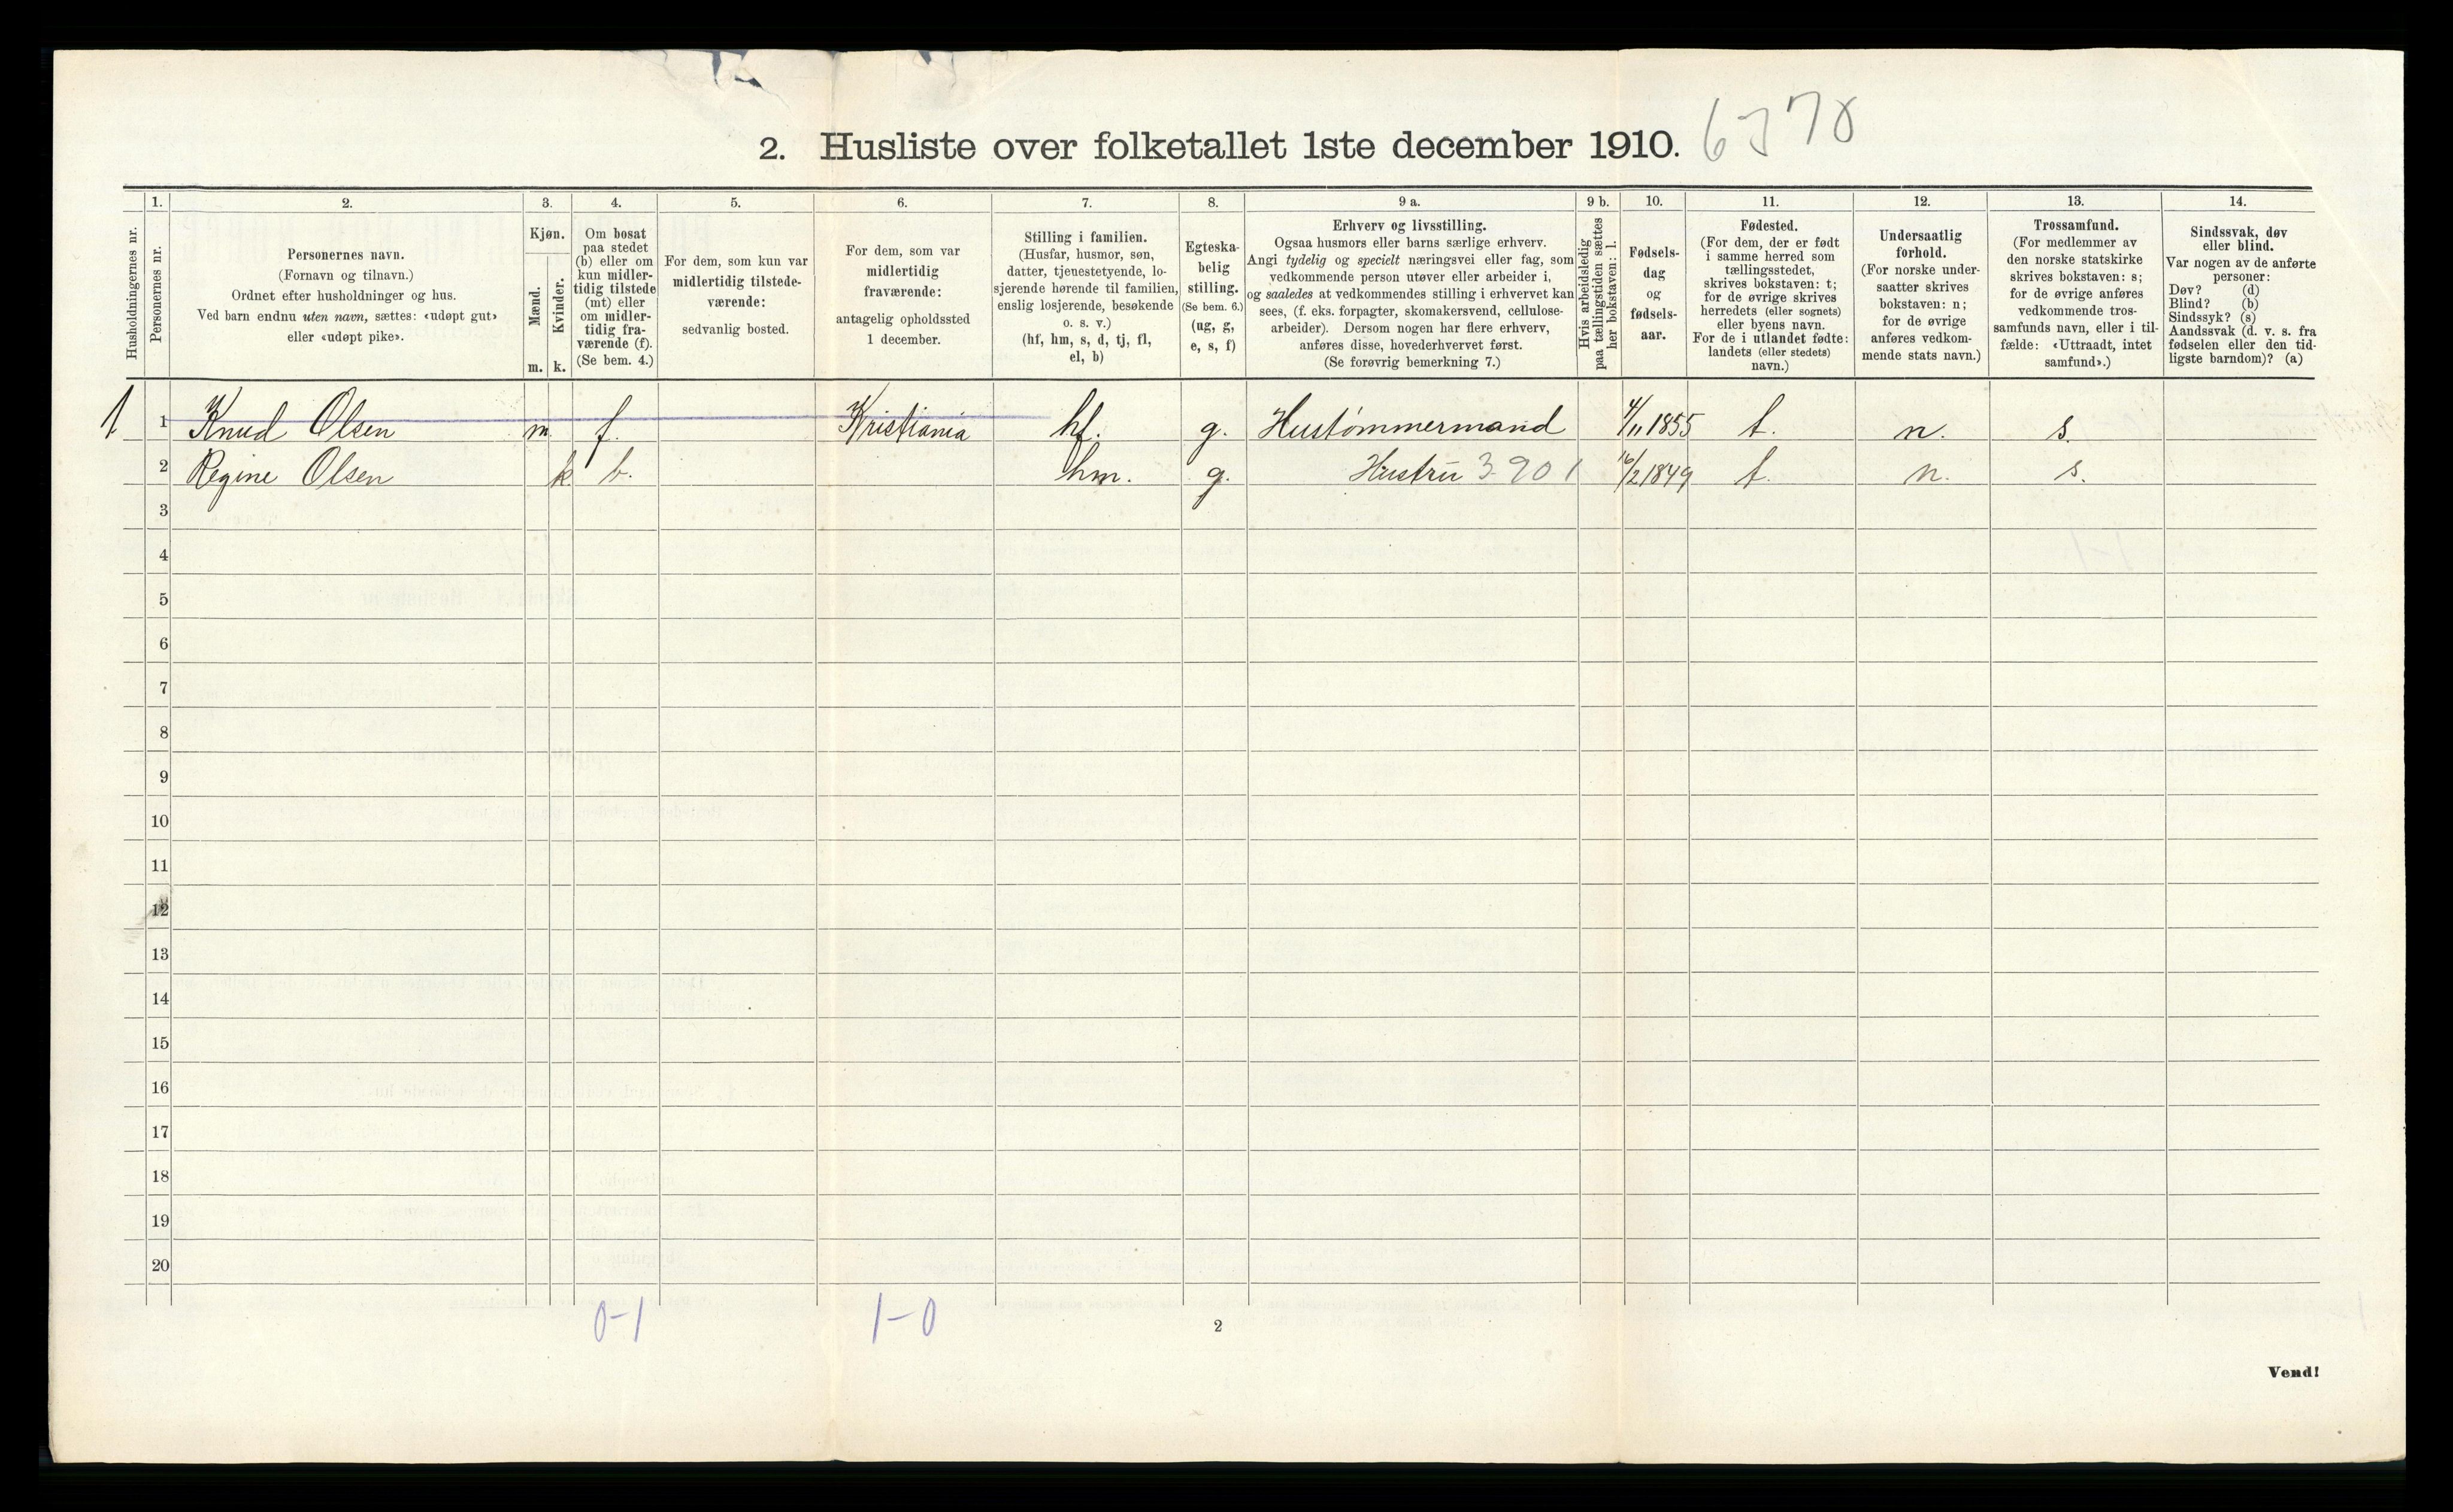 2. Husliste over folketallet 1ste december 1910.
Husholdningernes nr.
1.
Personernes nr.
2.
Personernes navn.
(Fornavn og tilnavn.)
Ordnet efter husholdninger og hus.
Ved barn endnu uten navn, sættes: «udøpt gut»
eller «udøpt pike».
3.
Kjøn.
Mænd.
Kvinder.
m. k.
4.
Om bosat
paa stedet
(b) eller om
kun midler-
tidig tilstede
(mt) eller
om midler-
tidig fra-
værende (f).
(Se bem. 4.)
5.
For dem, som kun var
midlertidig tilstede-
værende:
sedvanlig bosted.
6.
For dem, som var
midlertidig
fraværende:
antagelig opholdssted
1 december.
7.
Stilling i familien.
(Husfar, husmor, søn,
datter, tjenestetyende, lo-
sjerende hørende til familien,
enslig losjerende, besøkende
o. s. v.)
(hf, hm, s, d, tj, fl,
el, b)
8.
Egteska-
belig
stilling.
(Se bem. 6.)
(ug, g,
e, s, f)
9 a.
Erhverv og livsstilling.
Ogsaa husmors eller barns særlige erhverv.
Angi tydelig og specielt næringsvei eller fag, som
vedkommende person utøver eller arbeider i,
og saaledes at vedkommendes stilling i erhvervet kan
sees, (f. eks. forpagter, skomakersvend, cellulose-
arbeider). Dersom nogen har flere erhverv,
anføres disse, hovederhvervet først.
(Se forøvrig bemerkning 7.)
9 b.
Hvis arbeidsledig
paa tællingstiden sættes
her bokstaven: l.
10.
Fødsels-
dag
og
fødsels-
aar.
11.
Fødested.
(For dem, der er født
i samme herred som
tællingsstedet,
skrives bokstaven: t;
for de øvrige skrives
herredets (eller sognets)
eller byens navn.
For de i utlandet fødte:
landets (eller stedets)
navn.)
12.
Undersaatlig
forhold.
(For norske under-
saatter skrives
bokstaven: n;
for de øvrige
anføres vedkom-
mende stats navn.)
13.
Trossamfund.
(For medlemmer av
den norske statskirke
skrives bokstaven: s;
for de øvrige anføres
vedkommende tros-
samfunds navn, eller i til-
fælde: «Uttraadt, intet
samfund».)
14.
Sindssvak, døv
eller blind.
Var nogen av de anførte
personer:
Døv? (d)
Blind? (b)
Sindssyk? (s)
Aandssvak (d. v. s. fra
fødselen eller den tid-
ligste barndom)? (a)
1 1 Knud Olsen m. f. Kristiania hf. g. Hustømmermand 4/11 1855 t. n. s.
2 Regine Olsen k b. hm. g. Hustru 3 901 16/2 1849 t. n. s.
3
4
5
6
7
8
9
10
11
12
13
14
15
16
17
18
19
20
0-1 1-0
2
Vend!